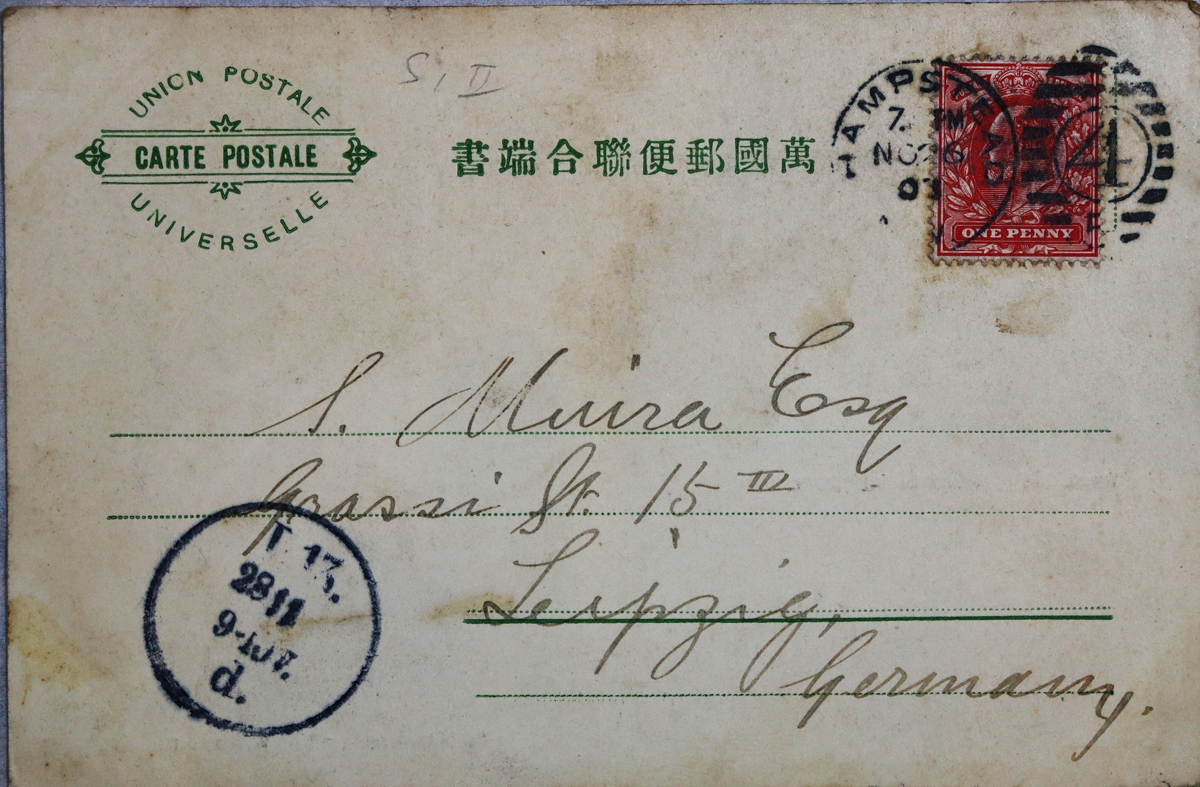 S, II
UNION POSTALE
CARTE POSTALE
UNIVERSELLE
書端合聯便郵國萬
HAMPSTEAD
NO 26
4
ONE PENNY
S. Miura Esq
Grassi St. 15 III
Leipzig,
Germany.
T 13.
28 11
9-10 V.
d.